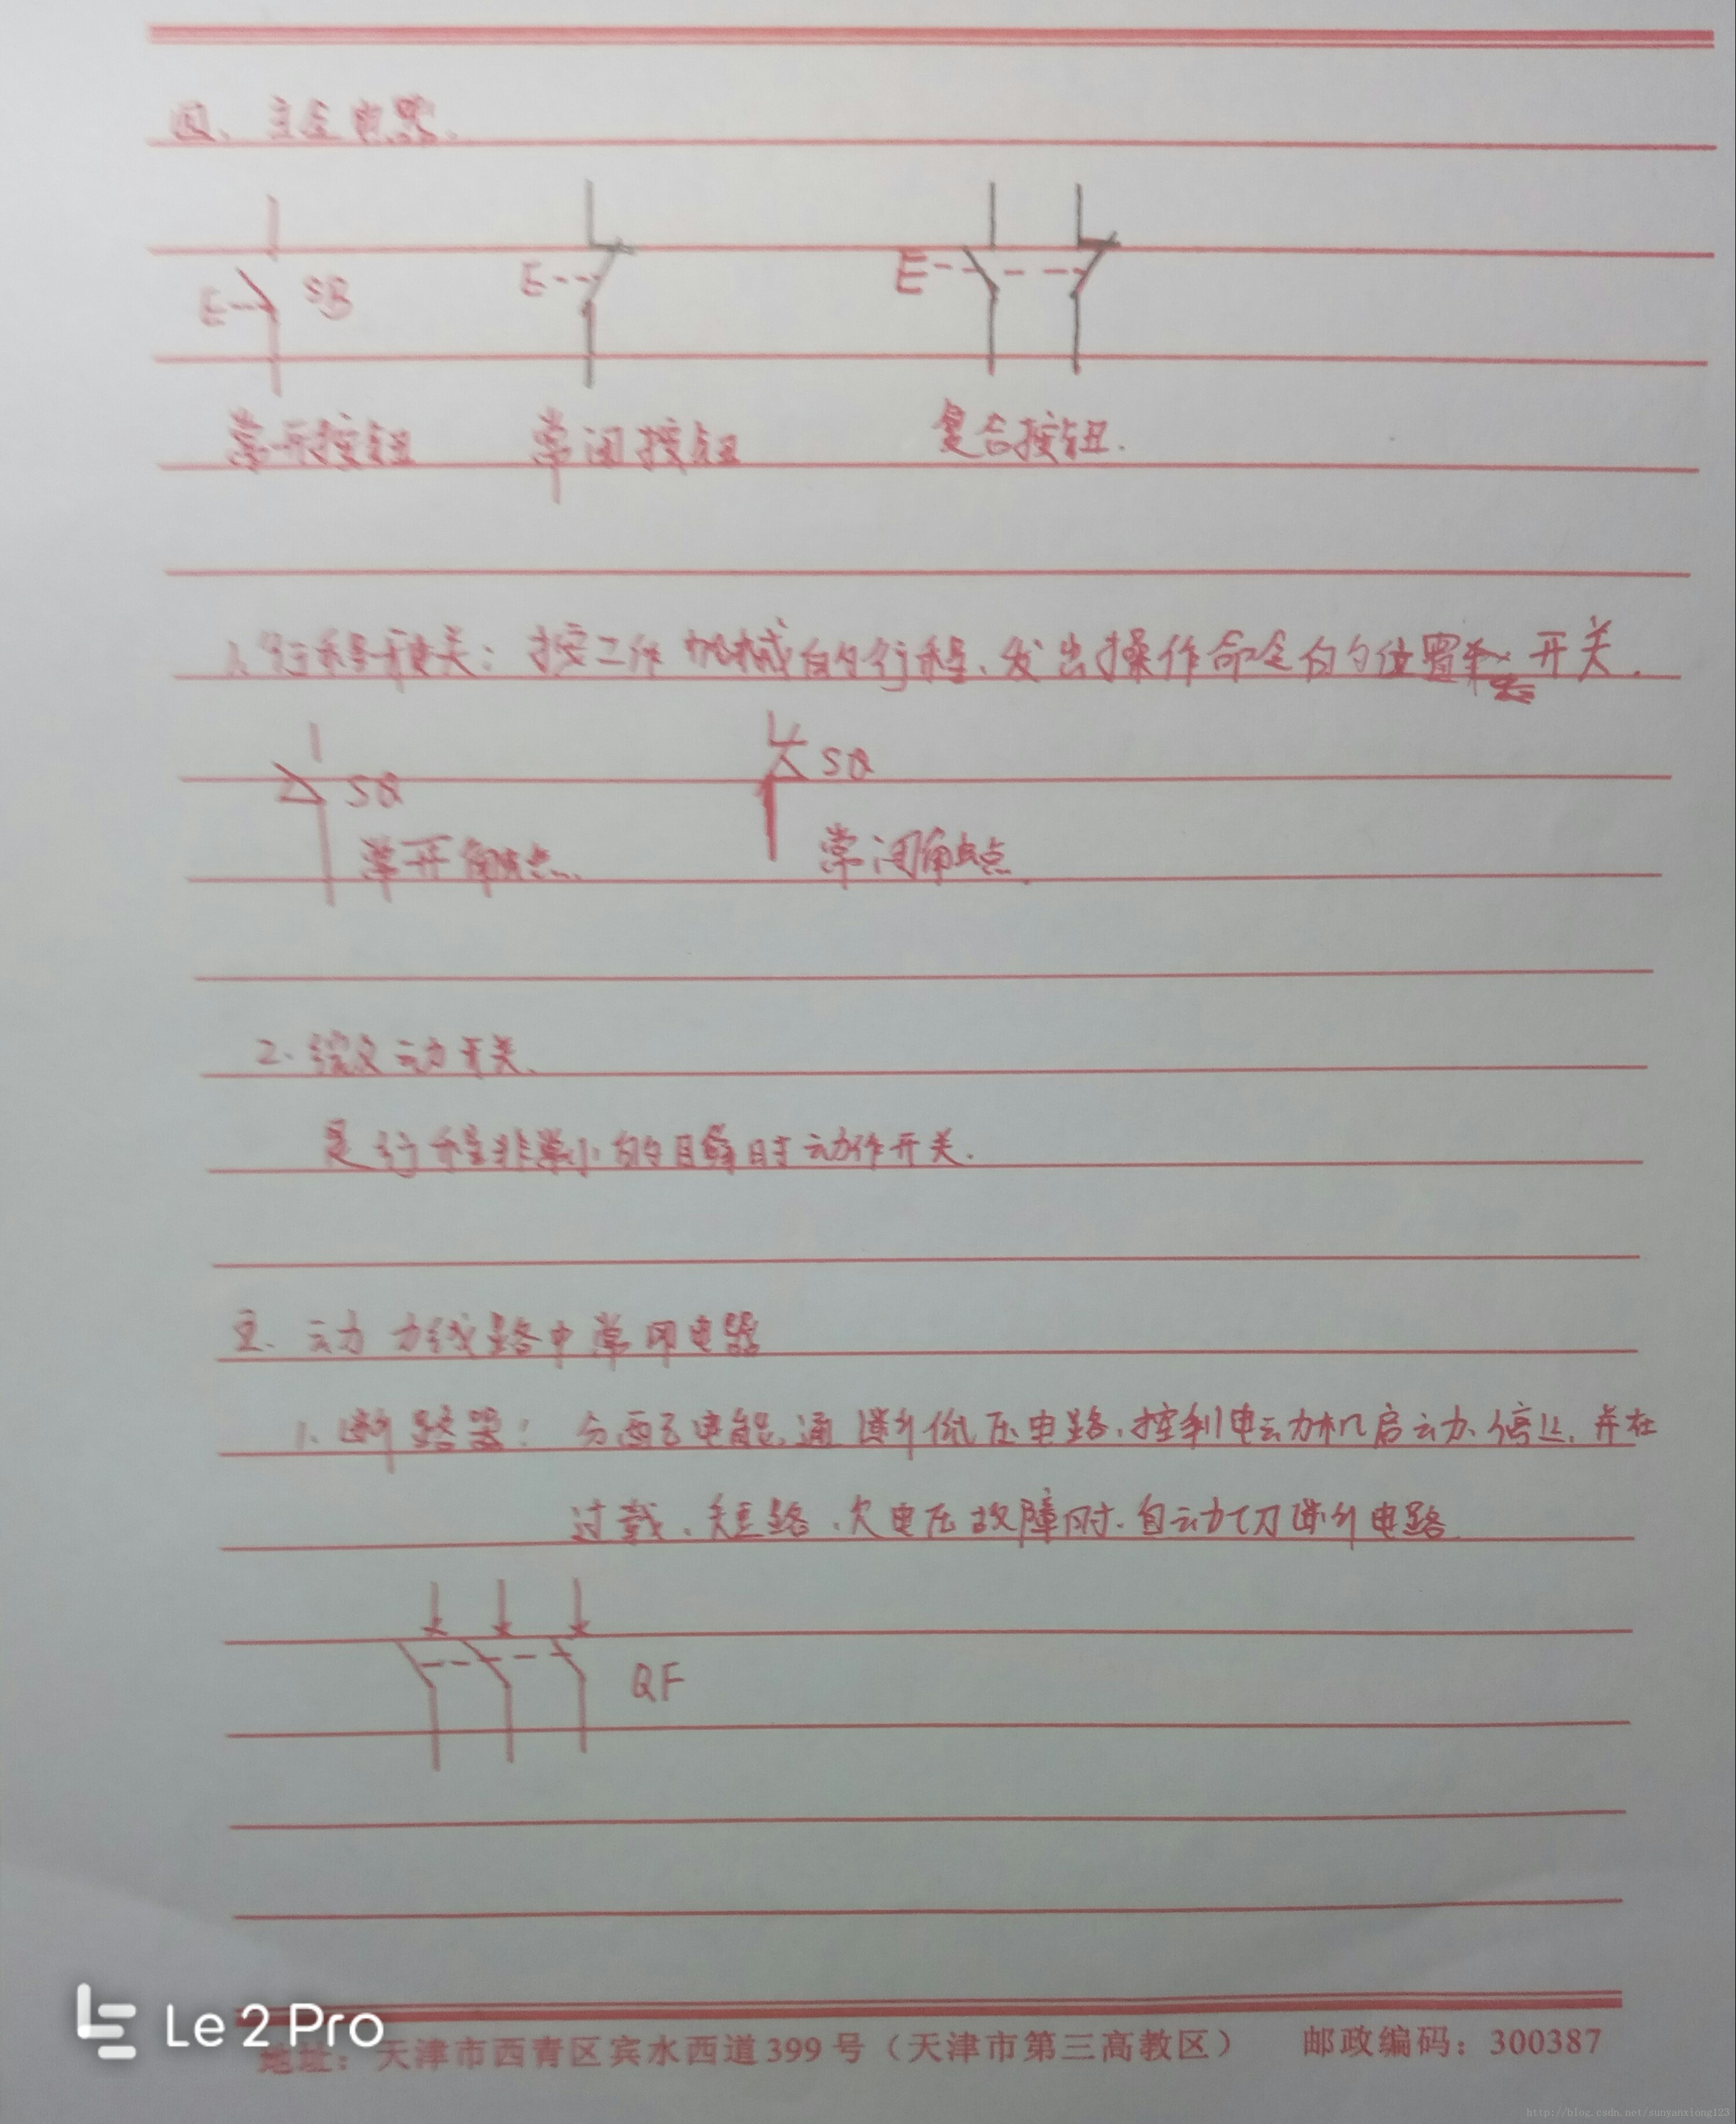 四、主令电器.
E SB
E
E
常开按钮 常闭按钮 复合按钮.
1.行程开关：按工作机械的行程、发出操作命令的位置 开关.
SQ SQ
常开触点. 常闭触点.
2. 动开关.
是行程非常小的瞬时动作开关.
五. 动力线路中常用电器
1. 断路器：分配电能,通断低压电路,控制电动机启动、停止,并在
过载、短路、欠电压故障时.自动切断电路
QF
Le 2 Pro
地址：天津市西青区宾水西道399号（天津市第三高教区） 邮政编码：300387
http://blog.csdn.net/sunyanxiong123